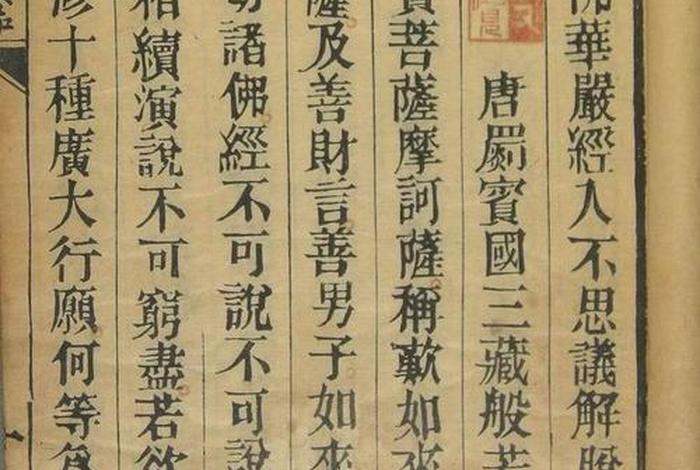 華嚴經入不思議解
唐罽賓國三藏般若
菩薩摩訶薩稱歎如來
及善財言善男子如來
諸佛經不可說不可說
相續演說不可窮盡若欲
修十種廣大行願何等爲